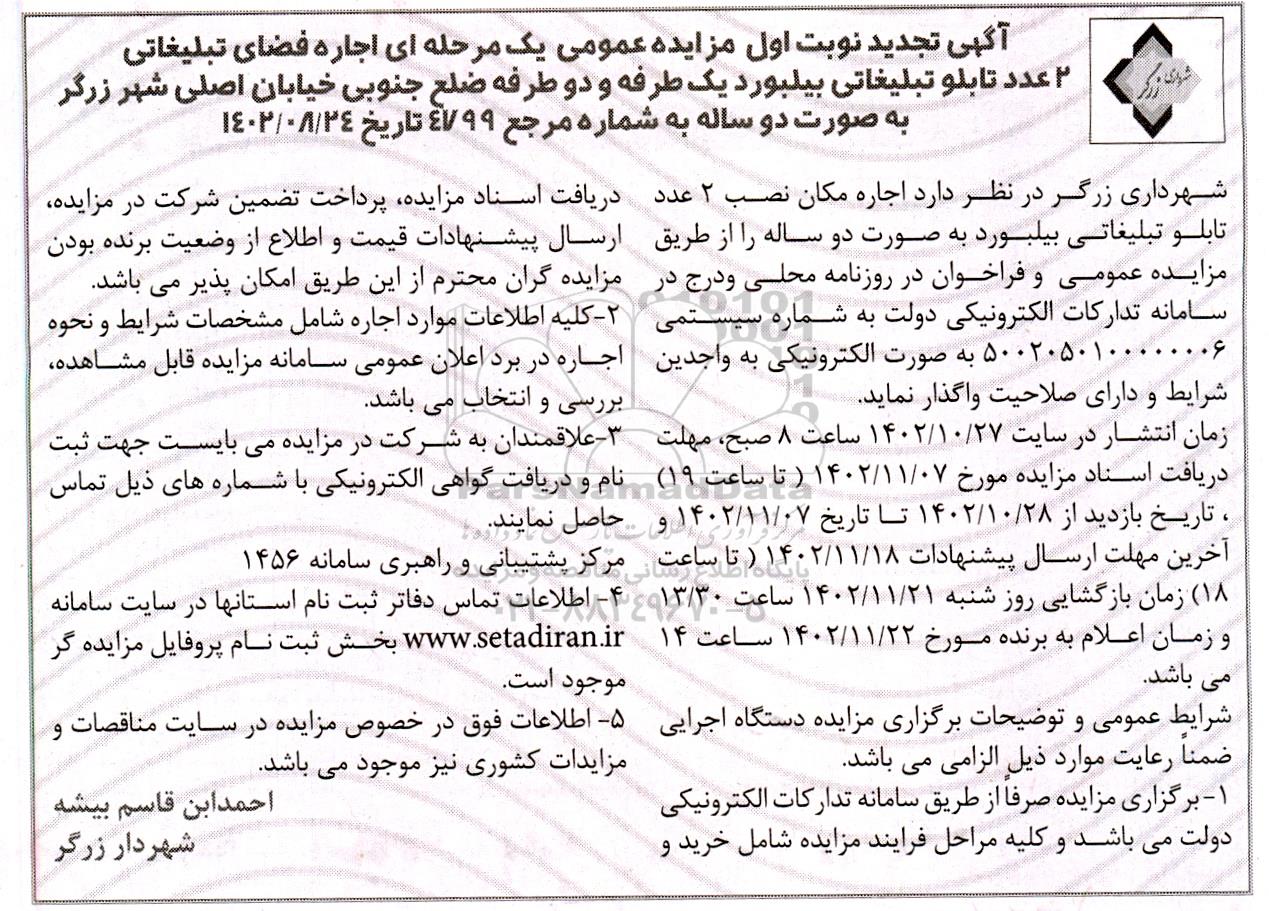 آگهی تجدید نوبت اول مزایده عمومی یک مرحله ای اجاره فضای تبلیغاتی
۲ عدد تابلو تبلیغاتی بیلبورد یک طرفه و دو طرفه ضلع جنوبی خیابان اصلی شهر زرگر
به صورت دو ساله به شماره مرجع ۴۷۹۹ تاریخ ۱۴۰۲/۰۸/۲۴
شهرداری زرگر
شهرداری زرگر در نظر دارد اجاره مکان نصب ۲ عدد
تابلو تبلیغاتی بیلبورد به صورت دو ساله را از طریق
مزایده عمومی و فراخوان در روزنامه محلی ودرج در
سامانه تدارکات الکترونیکی دولت به شماره سیستمی
۵۰۰۲۰۵۰۱۰۰۰۰۰۰۰۶ به صورت الکترونیکی به واجدین
شرایط و دارای صلاحیت واگذار نماید.
زمان انتشار در سایت ۱۴۰۲/۱۰/۲۷ ساعت ۸ صبح، مهلت
دریافت اسناد مزایده مورخ ۱۴۰۲/۱۱/۰۷ ( تا ساعت ۱۹)
، تاریخ بازدید از ۱۴۰۲/۱۰/۲۸ تا تاریخ ۱۴۰۲/۱۱/۰۷ و
آخرین مهلت ارسال پیشنهادات ۱۴۰۲/۱۱/۱۸ ( تا ساعت
۱۸) زمان بازگشایی روز شنبه ۱۴۰۲/۱۱/۲۱ ساعت ۱۳/۳۰
و زمان اعلام به برنده مورخ ۱۴۰۲/۱۱/۲۲ ساعت ۱۴
می باشد.
شرایط عمومی و توضیحات برگزاری مزایده دستگاه اجرایی
ضمناً رعایت موارد ذیل الزامی می باشد.
۱-برگزاری مزایده صرفاً از طریق سامانه تدارکات الکترونیکی
دولت می باشد و کلیه مراحل فرایند مزایده شامل خرید و
دریافت اسناد مزایده، پرداخت تضمین شرکت در مزایده،
ارسال پیشنهادات قیمت و اطلاع از وضعیت برنده بودن
مزایده گران محترم از این طریق امکان پذیر می باشد.
۲-کلیه اطلاعات موارد اجاره شامل مشخصات شرایط و نحوه
اجاره در برد اعلان عمومی سامانه مزایده قابل مشاهده،
بررسی و انتخاب می باشد.
۳-علاقمندان به شرکت در مزایده می بایست جهت ثبت
نام و دریافت گواهی الکترونیکی با شماره های ذیل تماس
حاصل نمایند.
مرکز پشتیبانی و راهبری سامانه ۱۴۵۶
۴- اطلاعات تماس دفاتر ثبت نام استانها در سایت سامانه
www.setadiran.ir بخش ثبت نام پروفایل مزایده گر
موجود است.
۵- اطلاعات فوق در خصوص مزایده در سایت مناقصات و
مزایدات کشوری نیز موجود می باشد.
احمدابن قاسم بیشه
شهردار زرگر
ParsNamadData
پایگاه اطلاع رسانی مناقصه و مزایده
۰۲۱-۸۸۳۴۹۶۷۰-۵